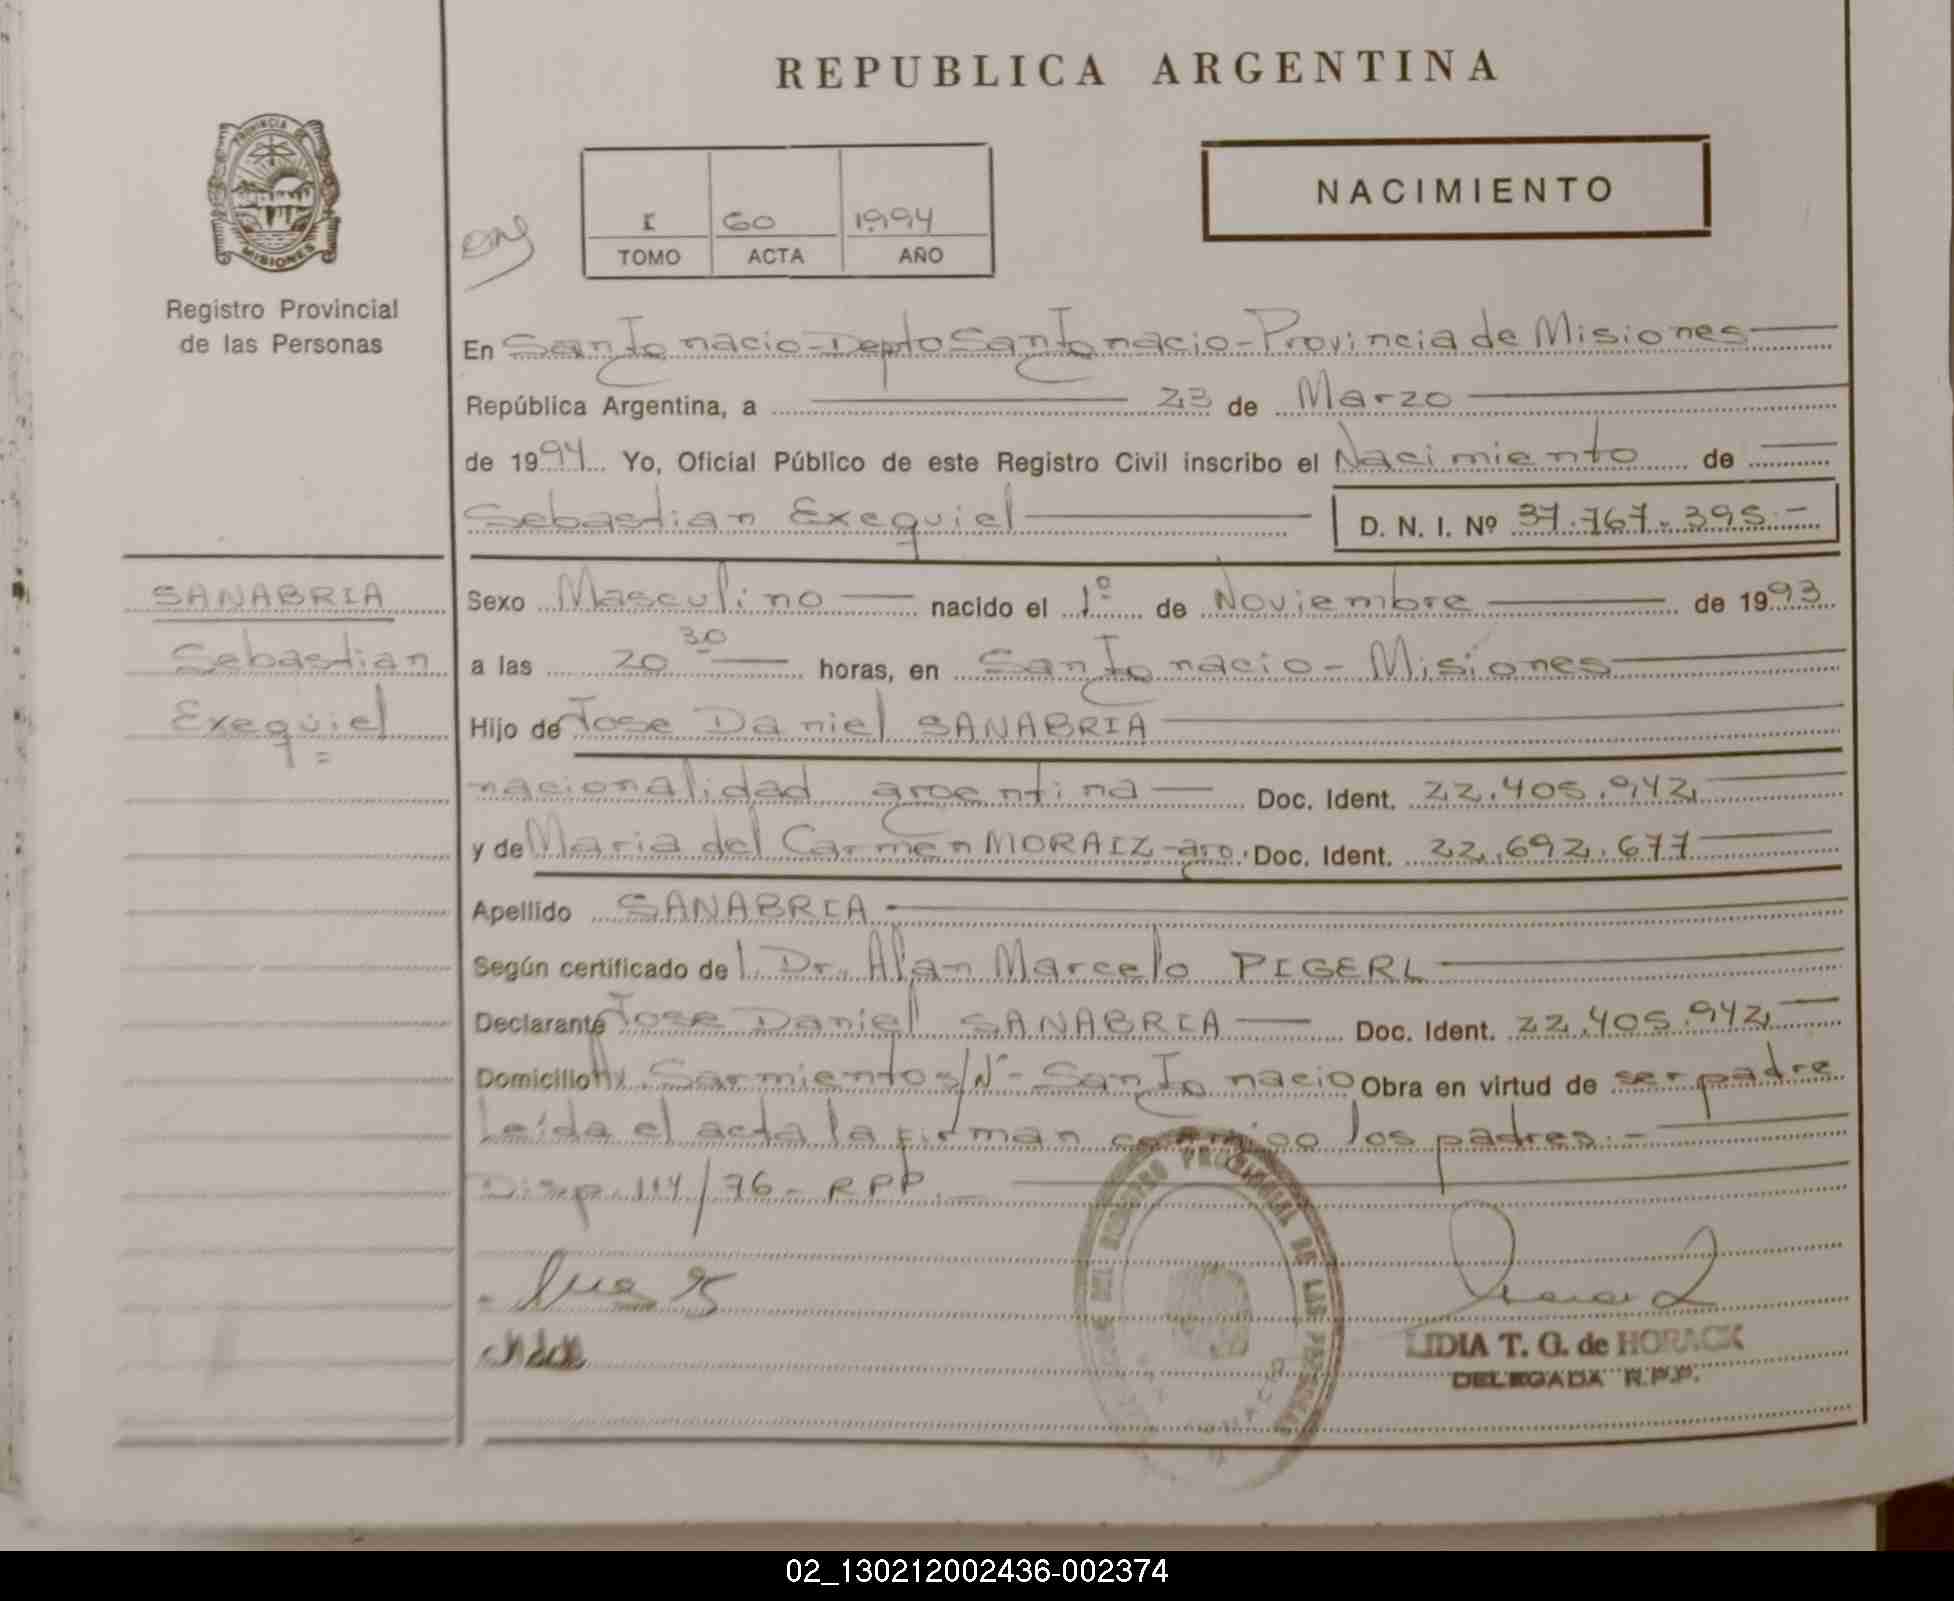 REPUBLICA ARGENTINA
PROVINCIA DE
MISIONES
Registro Provincial
de las Personas
I 60 1994
TOMO ACTA AÑO
NACIMIENTO
En San Ignacio - Depto San Ignacio - Provincia de Misiones
República Argentina, a 23 de Marzo
de 1994 Yo, Oficial Público de este Registro Civil inscribo el Nacimiento de
Sebastian Exequiel D. N. I. Nº 37.767.395.-
SANABRIA
Sebastian
Exequiel =
Sexo Masculino nacido el 1º de Noviembre de 1993
a las 20 30 horas, en San Ignacio - Misiones
Hijo de Jose Daniel SANABRIA
nacionalidad argentina Doc. Ident. 22.405.942
y de Maria del Carmen MORAIZ - arg. Doc. Ident. 22.692.677
Apellido SANABRIA
Según certificado del Dr. Alan Marcelo PIGERL
Declarante Jose Daniel SANABRIA Doc. Ident. 22.405.942
Domicilio Sarmiento s/Nº - San Ignacio Obra en virtud de ser padre
Leída el acta la firman conmigo los padres.-
Disp. 114/76 - RPP.
LIDIA T. G. de HORACK
DELEGADA R.P.P.
02_130212002436-002374